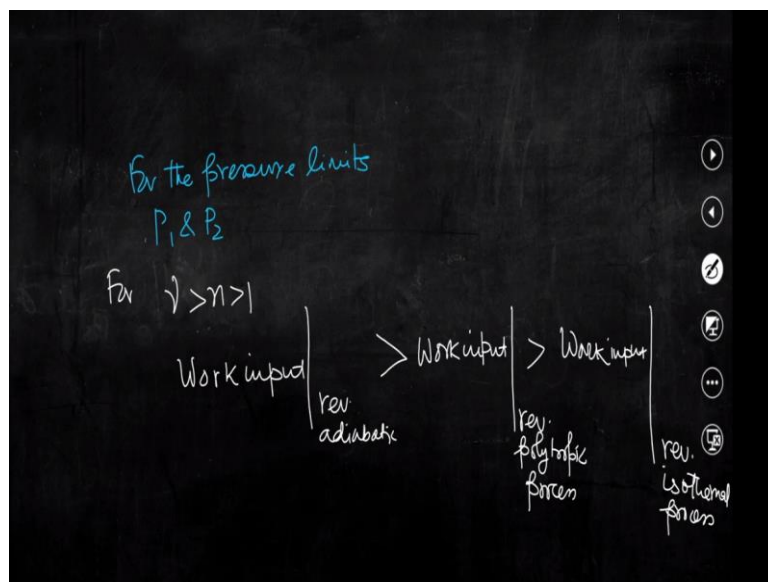 For the pressure limits
P₁ & P₂
For γ > n > 1
Work input | rev. adiabatic > Work input | rev. polytropic process > Work input | rev. isothermal process